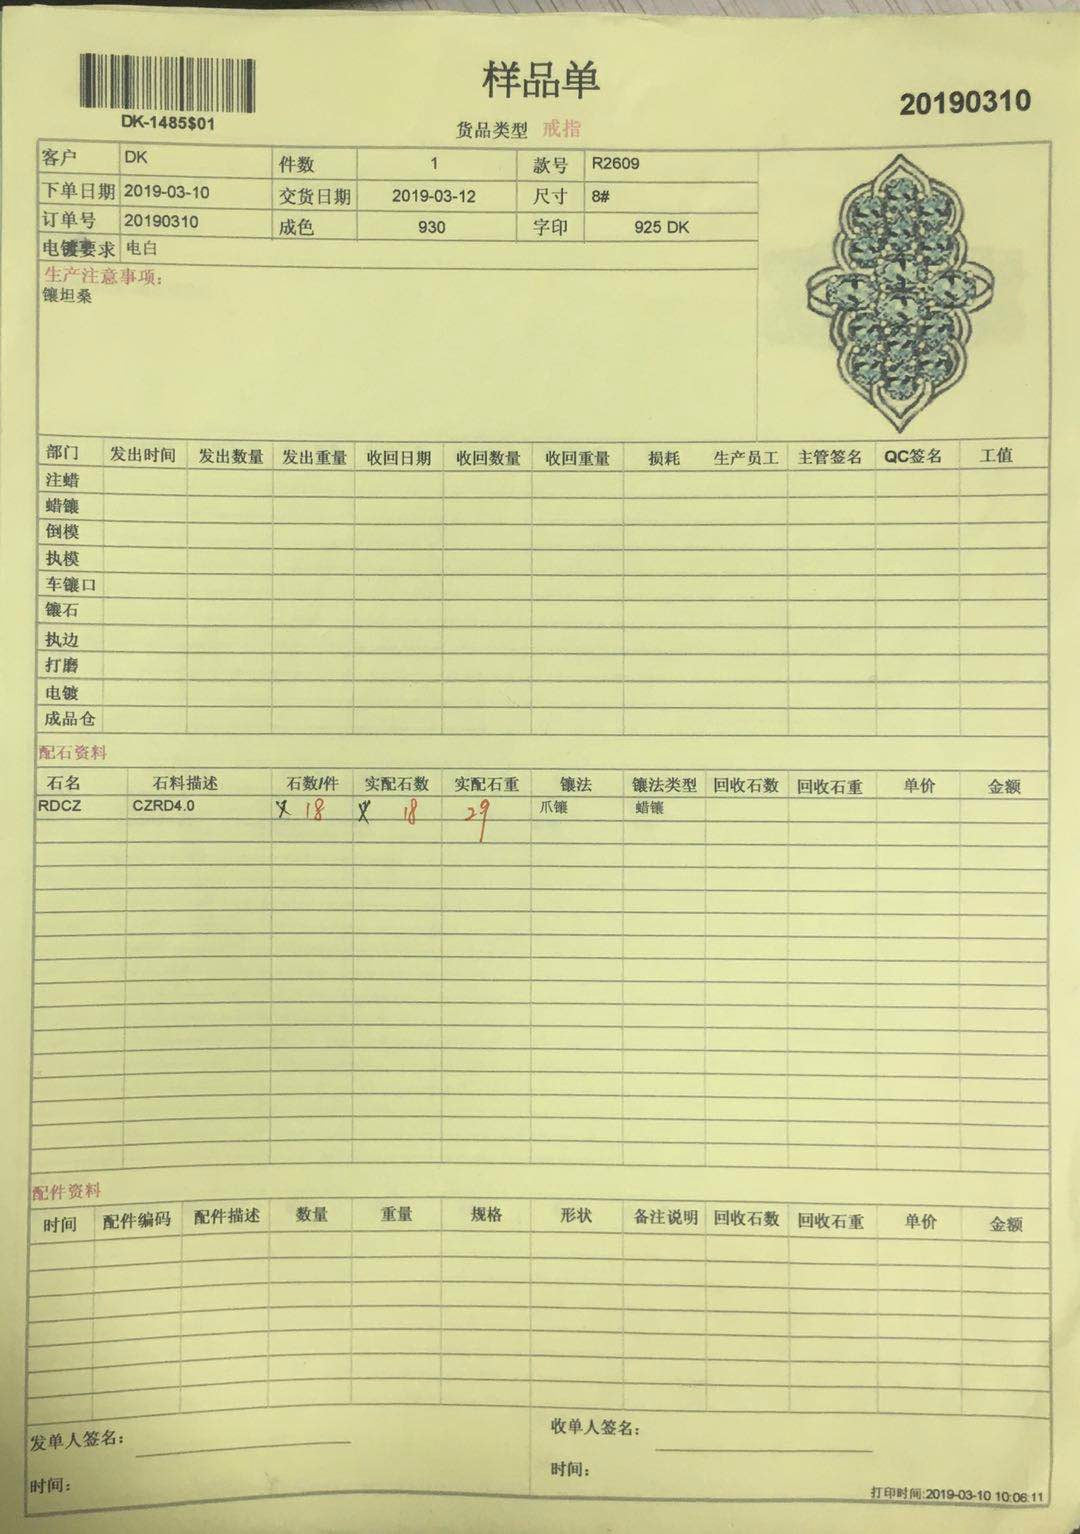 样品单
DK-1485$01
20190310
货品类型 戒指
客户 DK 件数 1 款号 R2609
下单日期 2019-03-10 交货日期 2019-03-12 尺寸 8#
订单号 20190310 成色 930 字印 925 DK
电镀要求 电白
生产注意事项:
镶坦桑
部门 发出时间 发出数量 发出重量 收回日期 收回数量 收回重量 损耗 生产员工 主管签名 QC签名 工值
注蜡
蜡镶
倒模
执模
车镶口
镶石
执边
打磨
电镀
成品仓
配石资料
石名 石料描述 石数/件 实配石数 实配石重 镶法 镶法类型 回收石数 回收石重 单价 金额
RDCZ CZRD4.0 18 18 29 爪镶 蜡镶
配件资料
时间 配件编码 配件描述 数量 重量 规格 形状 备注说明 回收石数 回收石重 单价 金额
发单人签名: 收单人签名:
时间: 时间:
打印时间:2019-03-10 10:06:11